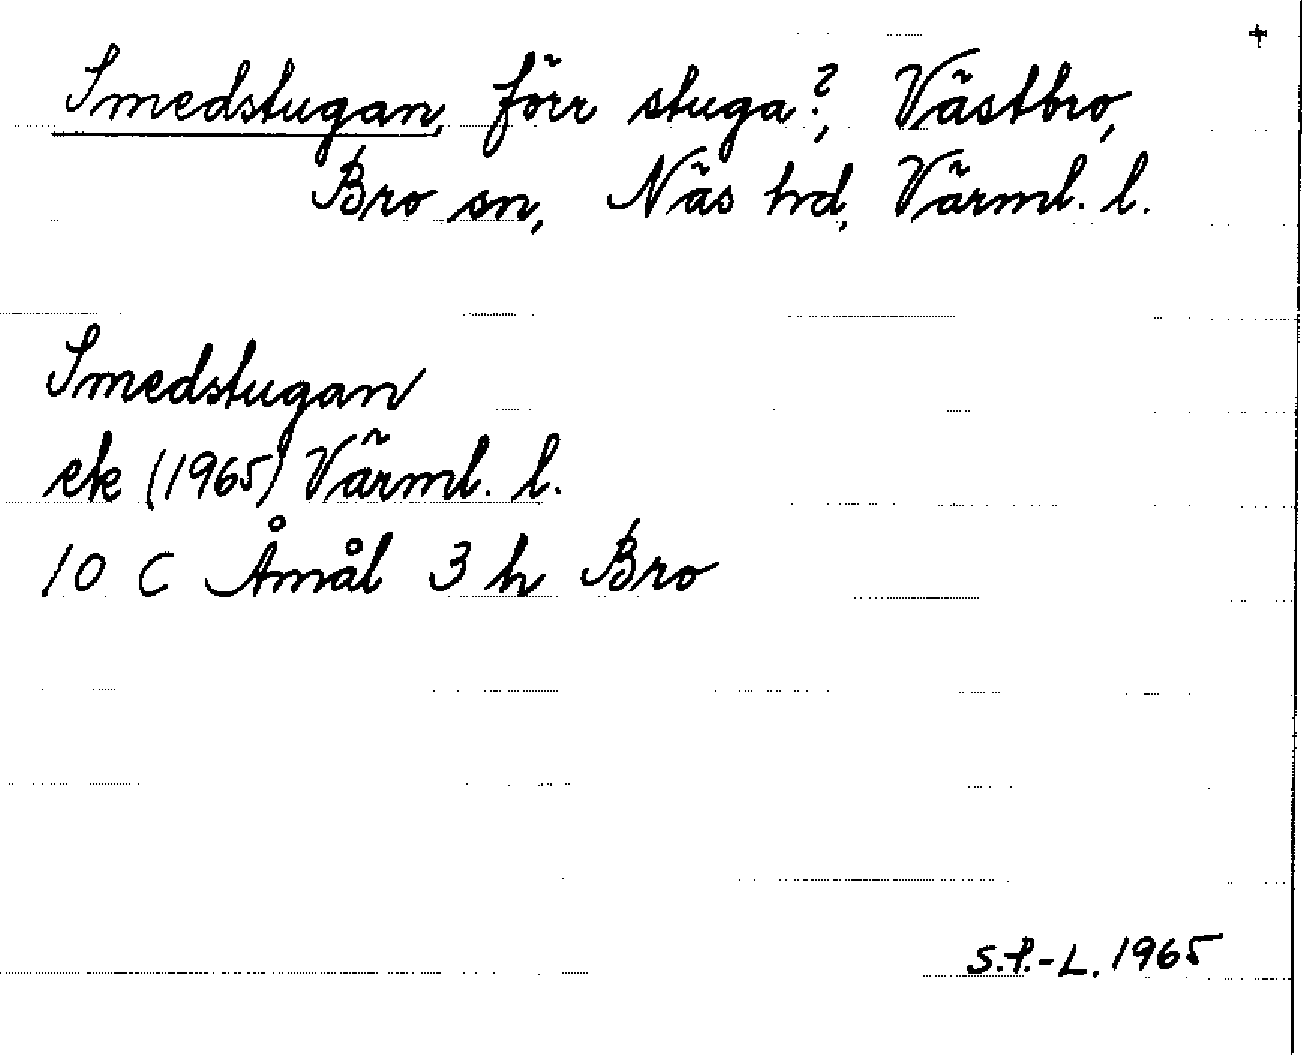 +
Smedstugan, förr stuga?, Västbro,
Bro sn, Näs hd, Värml. l.
Smedstugan
ek (1965) Värml. l.
10 C Åmål 3 h Bro
S.P.-L. 1965